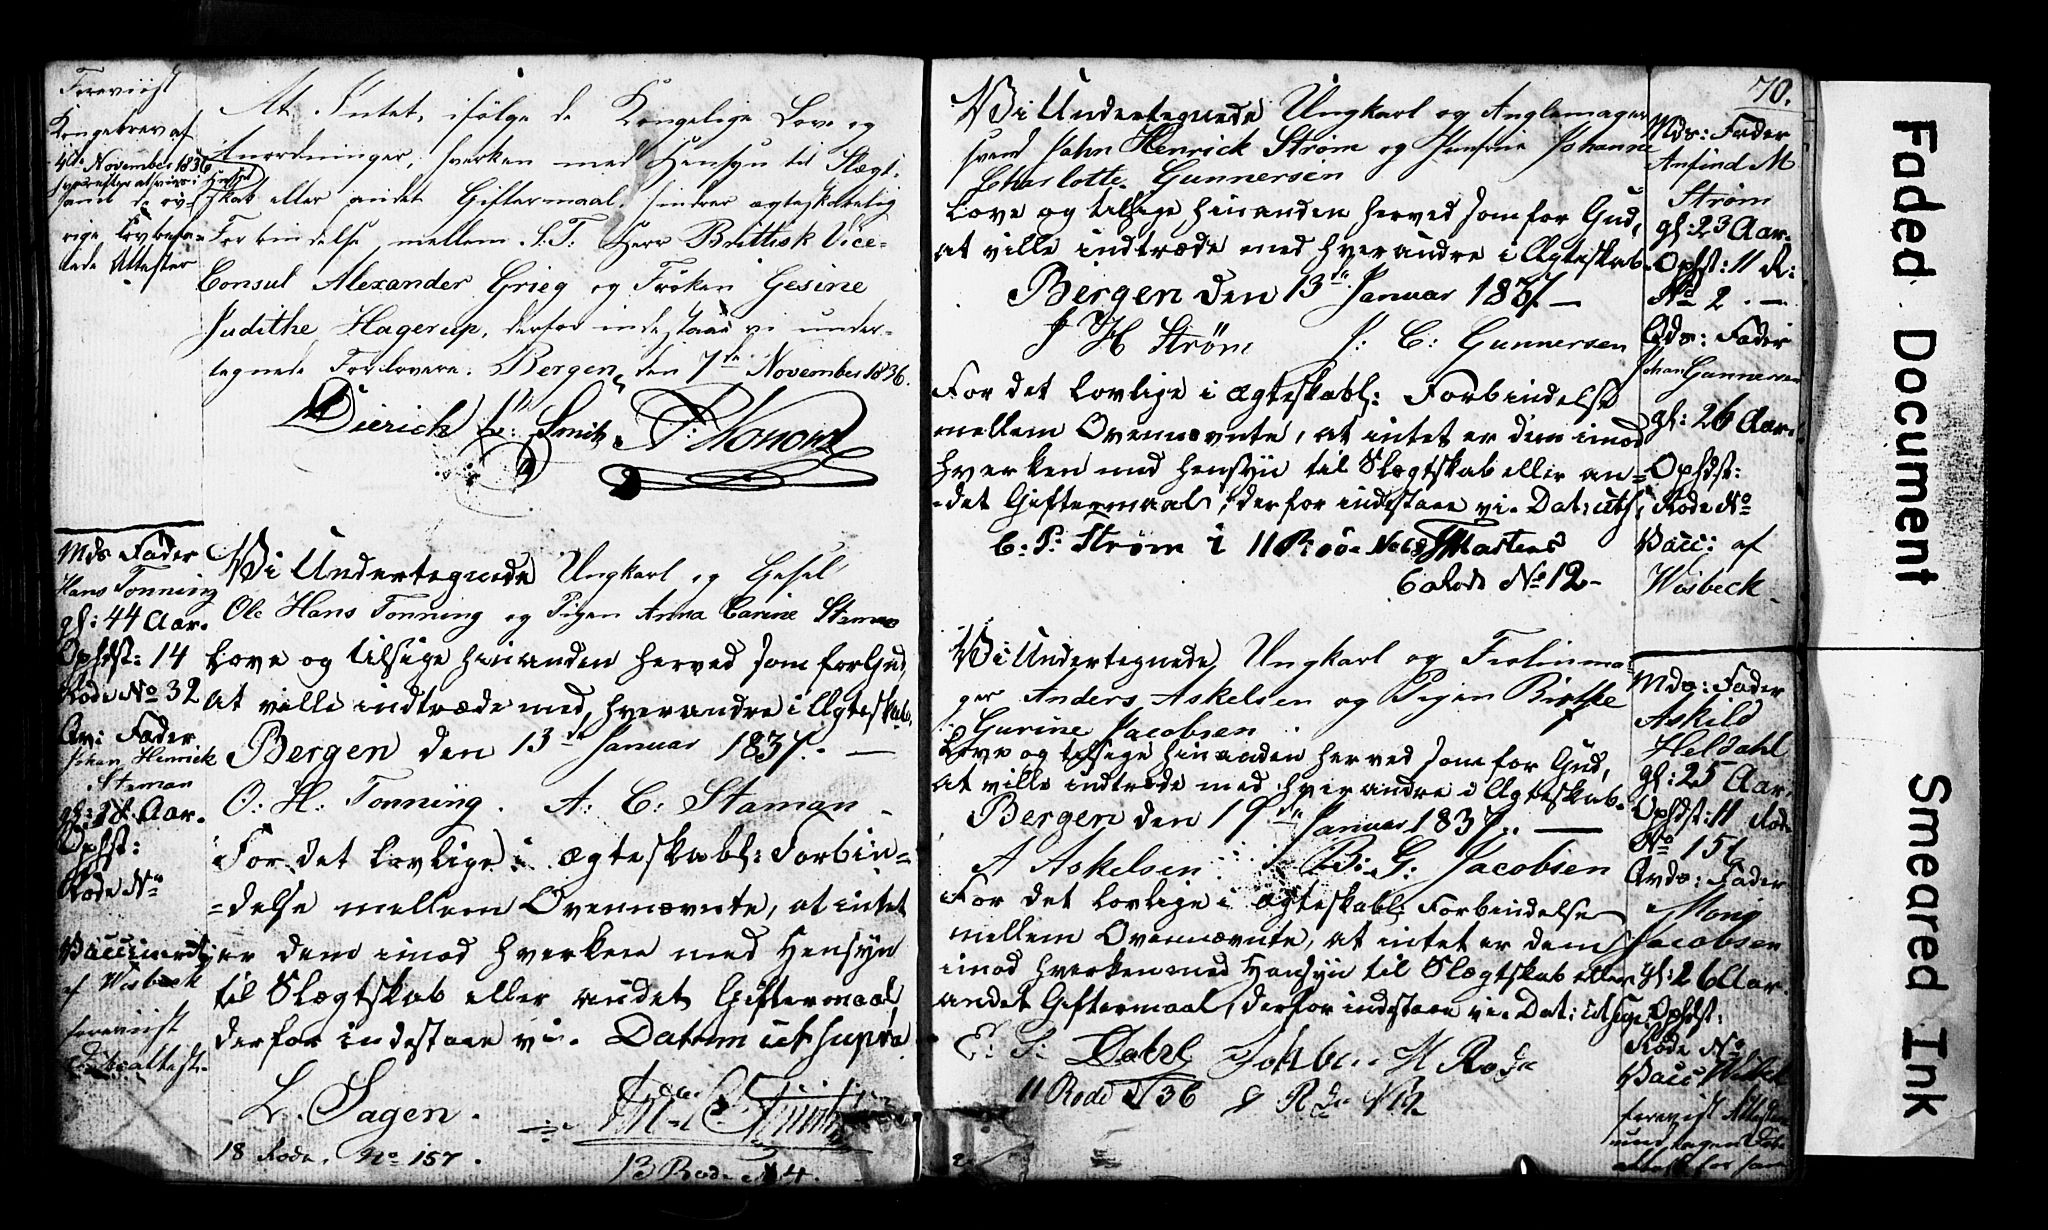 Foreviist
Kongebrev af
4de November 1836
hvorefter
samt de øv-
rige lovbefa-
lede Attester
At Intet, ifølge de Kongelige Love og
Anordninger, hverken med Hensyn til Slægt-
skab eller andet Giftermaal, hindrer ægteskabelig
Forbindelse mellem S. T. Herr Brittisk Vice-
Consul Alexander Grieg og Frøken Gesine
Judithe Hagerup, derfor indestaae vi under-
tegnede Forlovere. Bergen, den 7de November 1836.
Dierich Smit
Mds Fader
Hans Tonning
gl: 44 Aar.
Ophdst: 14
Rode No 32
Qv: Fader
Johan Henrick
Staman
gl: 28 Aar.
Ophst:
Rode No
Vaccinerede
af Wisbeck
foreviist
Vi Undertegnede Ungkarl og Gesel
Ole Hans Tonning og Pigen Anna Carine Staman
Love og tilsige hinanden herved som for Gud,
at ville indtræde med hverandre i Ægteskab.
Bergen den 13de Januar 1837. —
O: H: Tonning. A: C: Staman
For det lovlige i ægteskabl: Forbin=
=delse mellem Ovennævnte, at intet
er dem imod hverken med Hensyn
til Slægtskab eller andet Giftermaal,
derfor indestaae vi. Datum ut supra
L. Sagen.
18 Rode. No 157.
13 Rode 4.
70.
Vi Undertegnede Ungkarl og Anglemager
svend John Henrick Strøm og Jomfrue Johanne
Charlotte Gunnersen
Love og tilsige hinanden herved som for Gud,
at ville indtræde med hverandre i Ægteskab.
Bergen den 13de Januar 1837. —
J H Strøm J: C: Gunnersen
For det lovlige i ægteskabl: Forbindelse
mellem Ovennævnte, at intet er dem imod
hverken med Hensyn til Slægtskab eller an=
=det Giftermaal, derfor indestaae vi. Dat: uts:
C: P: Strøm i 11 Rode No 68 Martens
6 Rode No 12-
Mds: Fader
Anfind M
Strøm
gl: 23 Aar.
Ophst: 11 R:
No 2. —
Qds: Fader
Johan Gunnersen
gl: 26 Aar.
Ophdst:
Rode No
Vacc: af
Wisbeck.
Vi Undertegnede Ungkarl og Feelinma-
ger Anders Askelsen og Pigen Birthe
Gurine Jacobsen
Love og tilsige hinanden herved som for Gud,
at ville indtræde med hverandre i Ægteskab.
Bergen den 19de Januar 1837. —
A Askelsen B: G: Jacobsen
For det lovlige i ægteskabl: Forbindelse
mellem Ovennævnte, at intet er dem
imod hverken med Hensyn til Slægtskab eller
andet Giftermaal, derfor indestaae vi. Dat: ut
E: S: Dahl
11 Rode 36
Mds: Fader
Askild
Heldahl
gl: 25 Aar.
Ophdst: 11 Rode
No 151
Qvds: Fader
Monig
Jacobsen
gl: 26 Aar.
Ophdst:
Rode No
Vacc Wisbeck
foreviist Attester
Faded Document
Smeared Ink